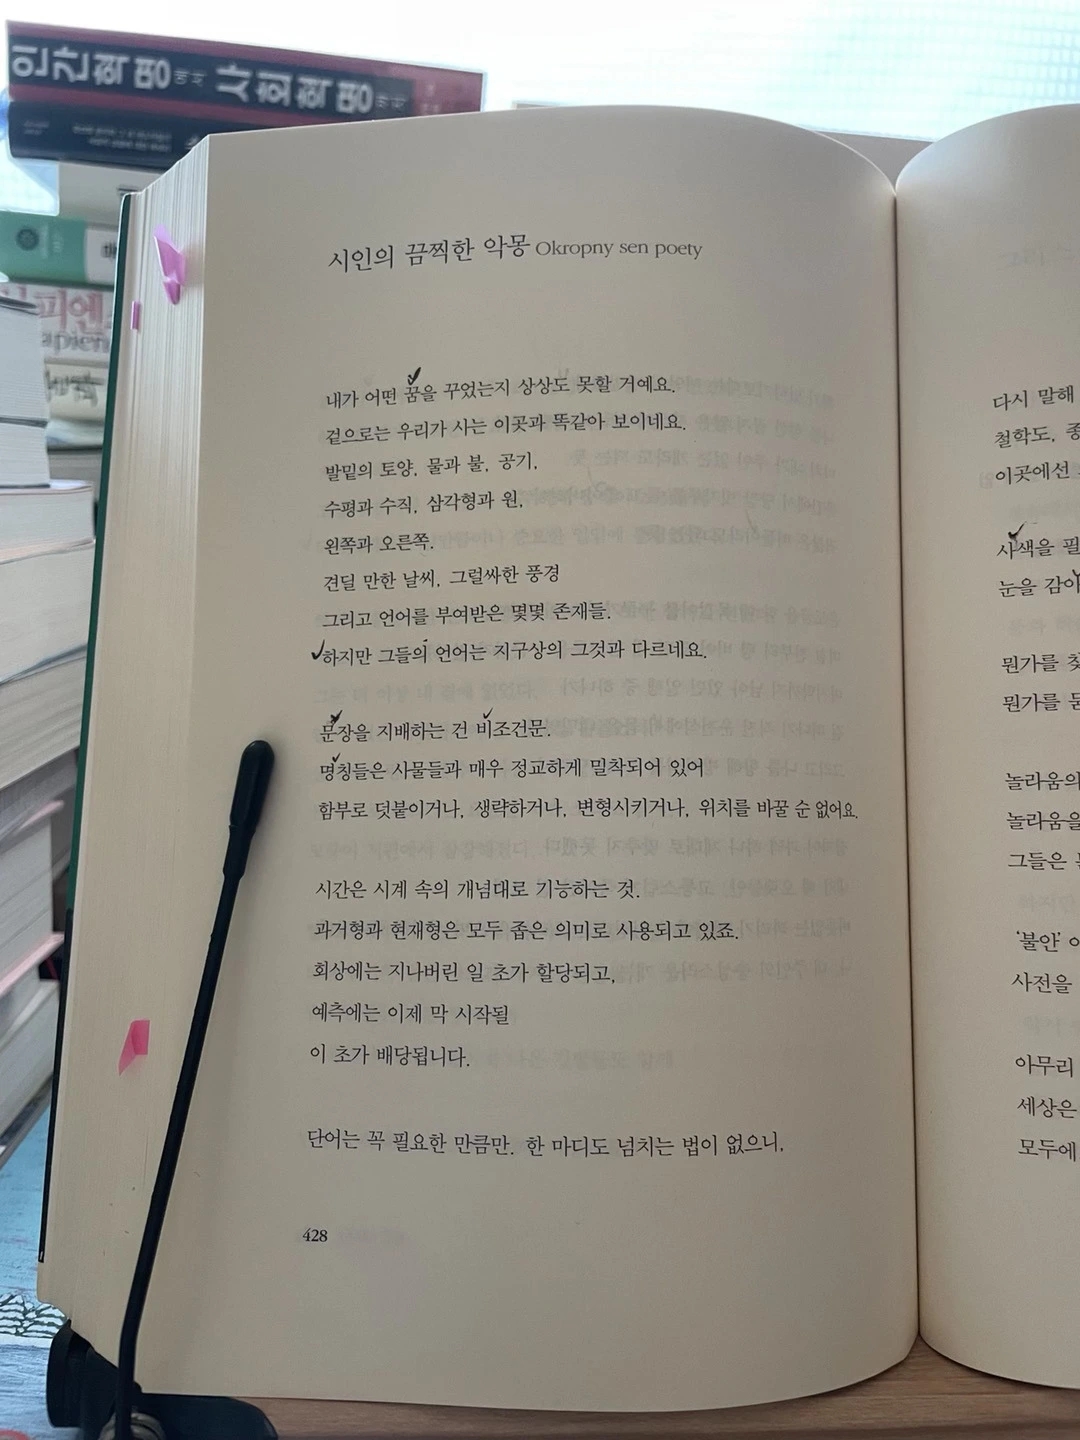 인간혁명에서 사회혁명까지
피엔스
시인의 끔찍한 악몽 Okropny sen poety
내가 어떤 꿈을 꾸었는지 상상도 못할 거예요.
겉으로는 우리가 사는 이곳과 똑같아 보이네요.
발밑의 토양, 물과 불, 공기,
수평과 수직, 삼각형과 원,
왼쪽과 오른쪽.
견딜 만한 날씨, 그럴싸한 풍경
그리고 언어를 부여받은 몇몇 존재들.
하지만 그들의 언어는 지구상의 그것과 다르네요.
문장을 지배하는 건 비조건문.
명칭들은 사물들과 매우 정교하게 밀착되어 있어
함부로 덧붙이거나, 생략하거나, 변형시키거나, 위치를 바꿀 순 없어요.
시간은 시계 속의 개념대로 기능하는 것.
과거형과 현재형은 모두 좁은 의미로 사용되고 있죠.
회상에는 지나버린 일 초가 할당되고,
예측에는 이제 막 시작될
이 초가 배당됩니다.
단어는 꼭 필요한 만큼만. 한 마디도 넘치는 법이 없으니,
428
다시 말해
철학도,
이곳에선
사색을
눈을 감아
뭔가를
뭔가를
놀라움의
놀라움을
그들은
'불안'
사전을
아무리
세상은
모두에